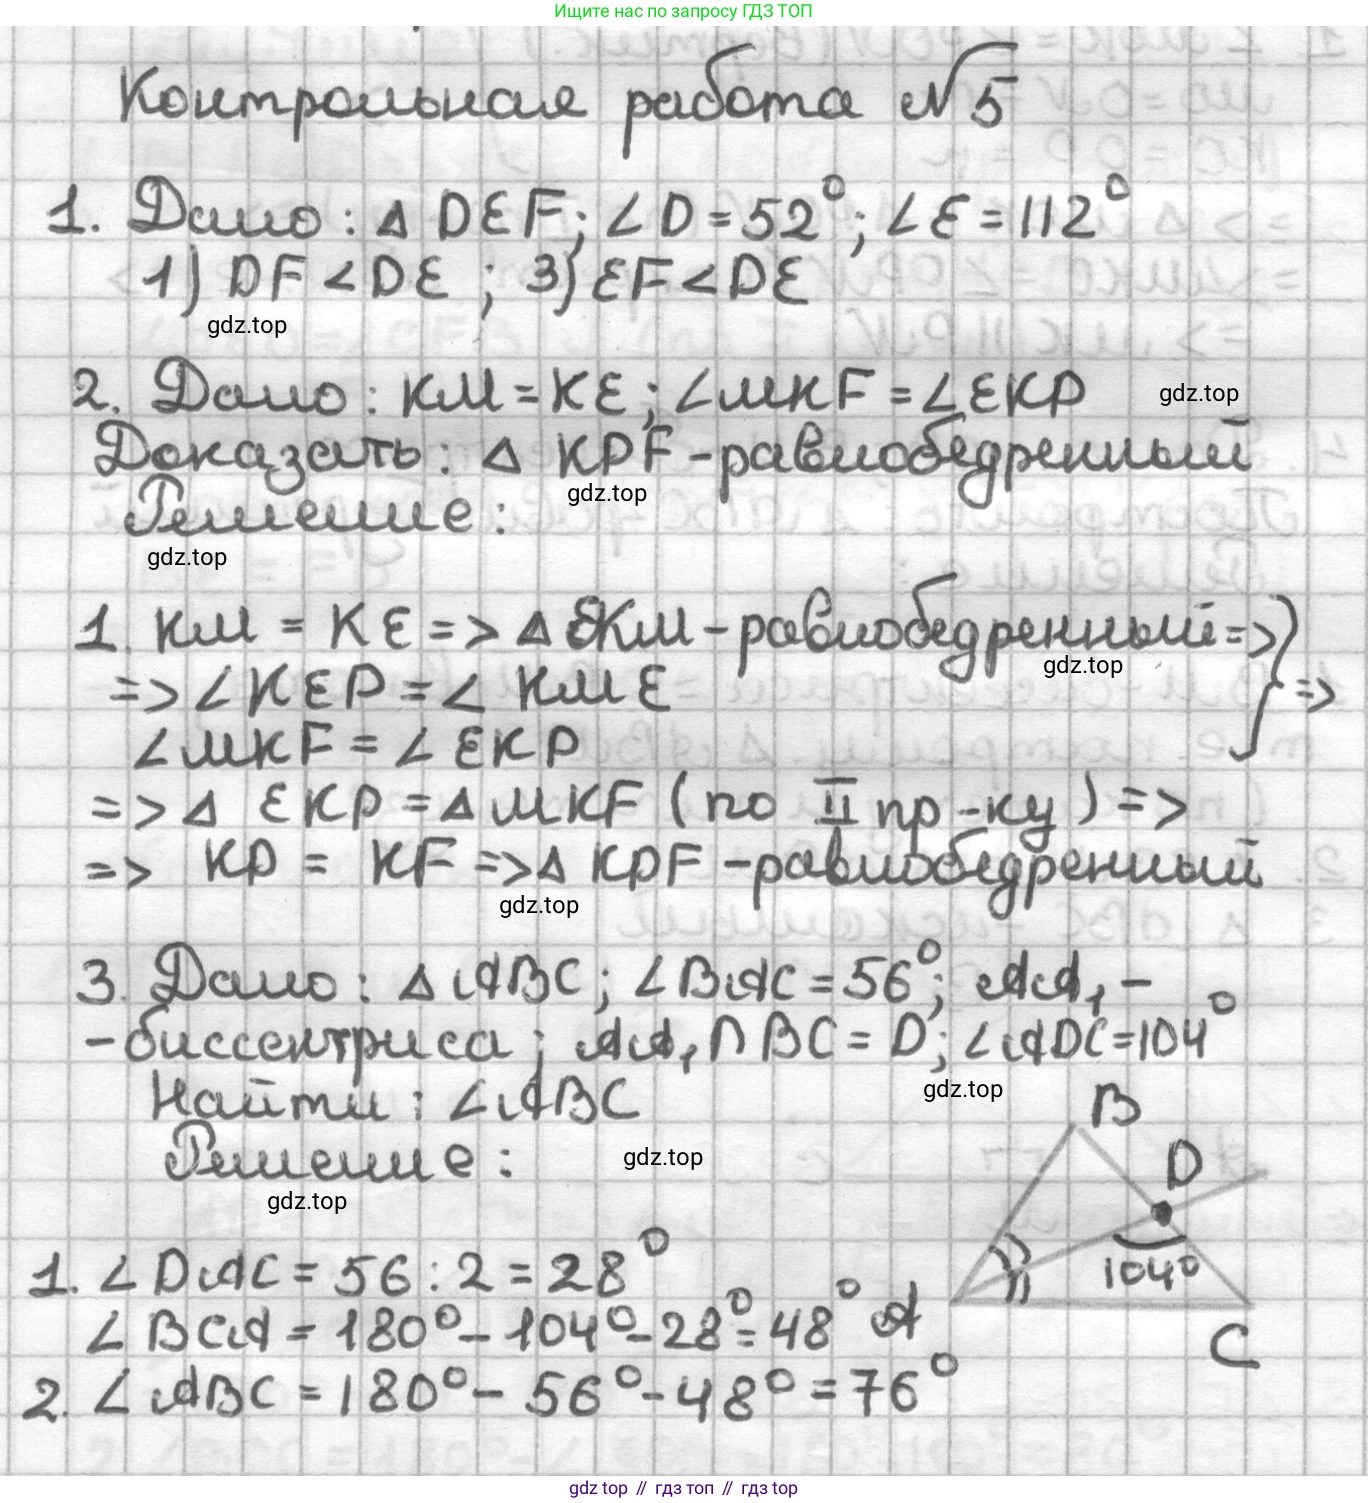 Ищите нас по запросу ГДЗ ТОП
Контрольная работа №5
1. Дано: Δ DEF; ∠D = 52°; ∠E = 112°
1) DF < DE ; 3) EF < DE
gdz.top
2. Дано: KM = KE; ∠MKF = ∠EKP
gdz.top
Доказать: Δ KPF - равнобедренный
gdz.top
Решение:
gdz.top
1. KM = KE => Δ EKM - равнобедренный =>
gdz.top
=> ∠KEP = ∠ KME } =>
∠MKF = ∠EKP
=> Δ EKP = Δ MKF (по II пр-ку) =>
=> KP = KF => Δ KPF - равнобедренный
gdz.top
3. Дано: Δ ABC; ∠BAC = 56°; AA₁ -
- биссектриса; AA₁ ∩ BC = D; ∠ADC = 104°
gdz.top
Найти: ∠ABC
Решение:
gdz.top
gdz.top
B
D
104°
A
C
1. ∠DAC = 56 : 2 = 28°
∠BCA = 180° - 104° - 28° = 48°
2. ∠ABC = 180° - 56° - 48° = 76°
gdz.top // гдз топ // гдз.top